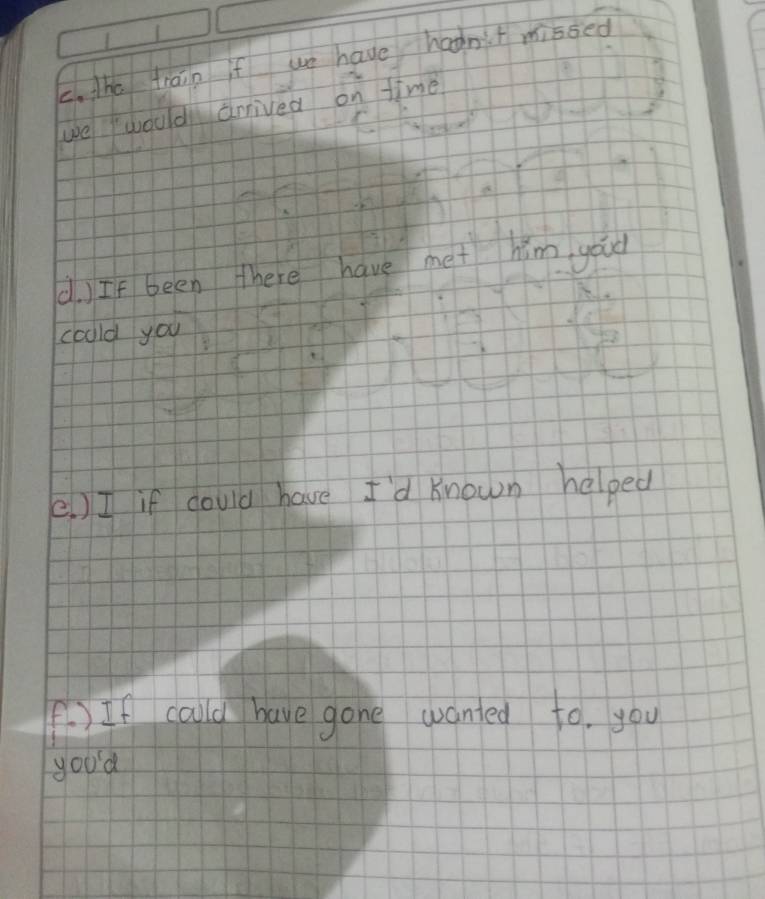 c. the train if we have hadn't missed
we would arrived on time
d.) If been there have met him, you'd
could you
e.) I if could have I'd known helped
f.) If could have gone wanted to. you
you'd